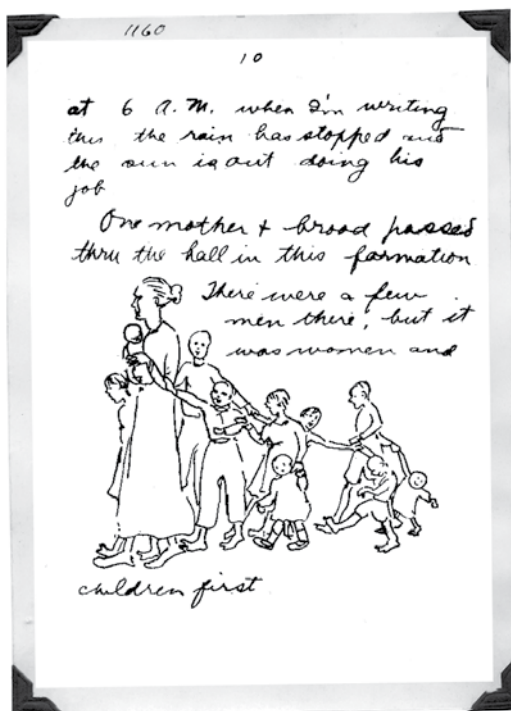 1160
10
at 6 A.M. when I'm writing
this the rain has stopped and
the sun is out doing his
job
One mother & brood passed
thru the hall in this formation
There were a few
men there, but it
was women and
children first